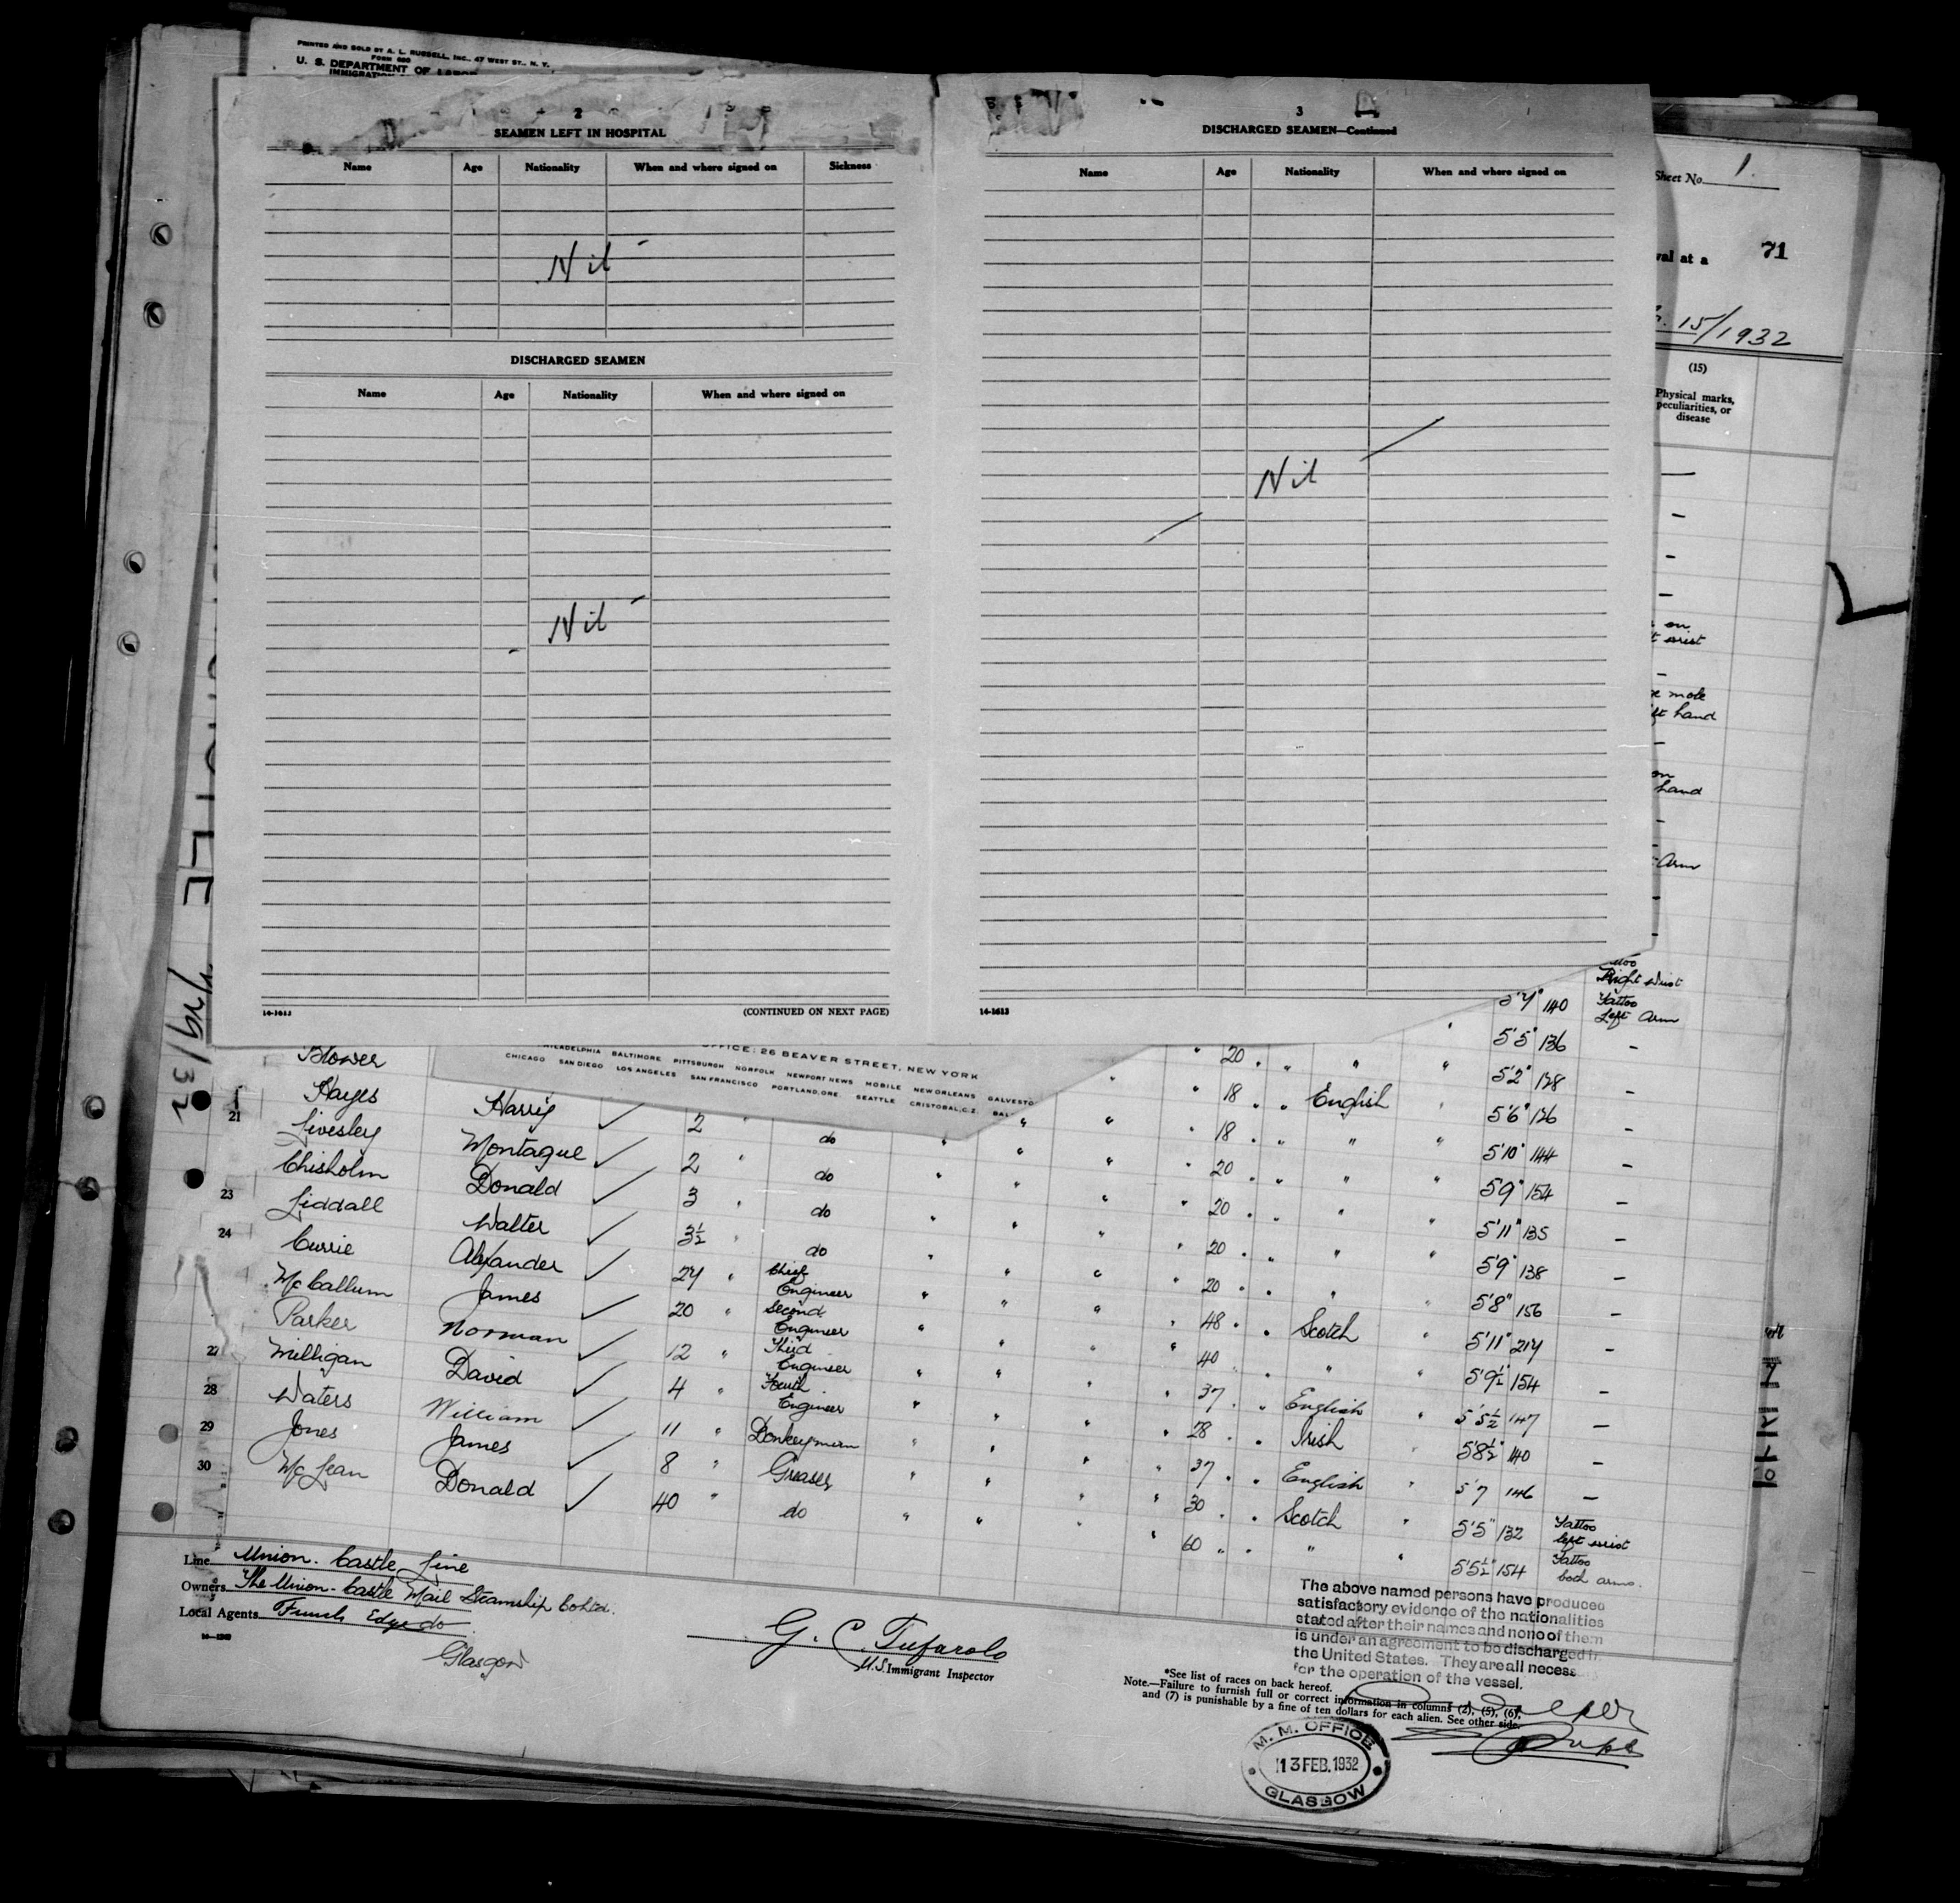 PRINTED AND SOLD BY A. L. RUSSELL, INC., 47 WEST ST., N. Y.
FORM 680
U. S. DEPARTMENT OF LABOR
2
SEAMEN LEFT IN HOSPITAL
Name Age Nationality When and where signed on Sickness
Nil
DISCHARGED SEAMEN
Name Age Nationality When and where signed on
Nil
14-1613 (CONTINUED ON NEXT PAGE)
3
DISCHARGED SEAMEN—Continued
Name Age Nationality When and where signed on
Nil
14-1613
Sheet No. 1.
val at a 71
15/1932
(15)
Physical marks,
peculiarities, or
disease
on
wrist
mole
hand
on
hand
Arm
Right Wrist
5'7" 140 Tattoo
Left Arm
OFFICE: 26 BEAVER STREET, NEW YORK
PHILADELPHIA BALTIMORE PITTSBURGH NORFOLK NEWPORT NEWS MOBILE NEW ORLEANS GALVESTON
CHICAGO SAN DIEGO LOS ANGELES SAN FRANCISCO PORTLAND, ORE. SEATTLE CRISTOBAL, C.Z. BAL
Blower 20 " " " 5'5" 136 –
18 " " English " 5'2" 128 –
21 Hayes Harry ✓ 2 " do " " " " 18 " " " " 5'6" 126 –
Livesley Montague ✓ 2 " do " " " " 20 " " " " 5'10" 144 –
Chisholm Donald ✓ 3 " do " " " " 20 " " " " 5'9" 154 –
23 Liddall Walter ✓ 3½ " do " " " " 20 " " " " 5'11" 135 –
24 Currie Alexander ✓ 27 " Chief Engineer " " " " 20 " " " " 5'9" 138 –
McCallum James ✓ 20 " Second Engineer " " " " 48 " " Scotch " 5'8" 156 –
Parker Norman ✓ 12 " Third Engineer " " " " 40 " " " " 5'11" 217 –
27 Milligan David ✓ 4 " Fourth Engineer " " " " 37 " " English " 5'9½" 154 –
28 Waters William ✓ 11 " Donkeyman " " " " 28 " " Irish " 5'5½" 147 –
29 Jones James ✓ 8 " Greaser " " " " 37 " " English " 5'8½" 140 –
30 McLean Donald ✓ 40 " do " " " " 30 " " Scotch " 5'7 146 –
60 " " " " 5'5" 132 Tattoo left wrist
5'5½" 154 Tattoo both arms.
Line Union-Castle Line
Owners The Union-Castle Mail Steamship Co Ltd.
Local Agents Funch Edye do
Glasgow
G. C. Tufarolo
U.S. Immigrant Inspector
The above named persons have produced
satisfactory evidence of the nationalities
stated after their names and none of them
is under an agreement to be discharged in
the United States. They are all necess
for the operation of the vessel.
*See list of races on back hereof.
Note.—Failure to furnish full or correct information in columns (2), (5), (6),
and (7) is punishable by a fine of ten dollars for each alien. See other side.
M. M. OFFICE
13 FEB. 1932
GLASGOW